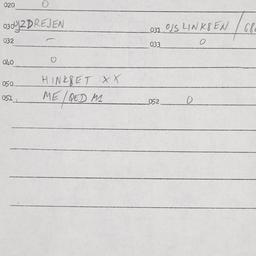 020 0
030 U2DREJEN 031 O/S LINKSEN /
032 - 033 0
040 0
050 HINKBET XX
051 ME/QED M1 052 0